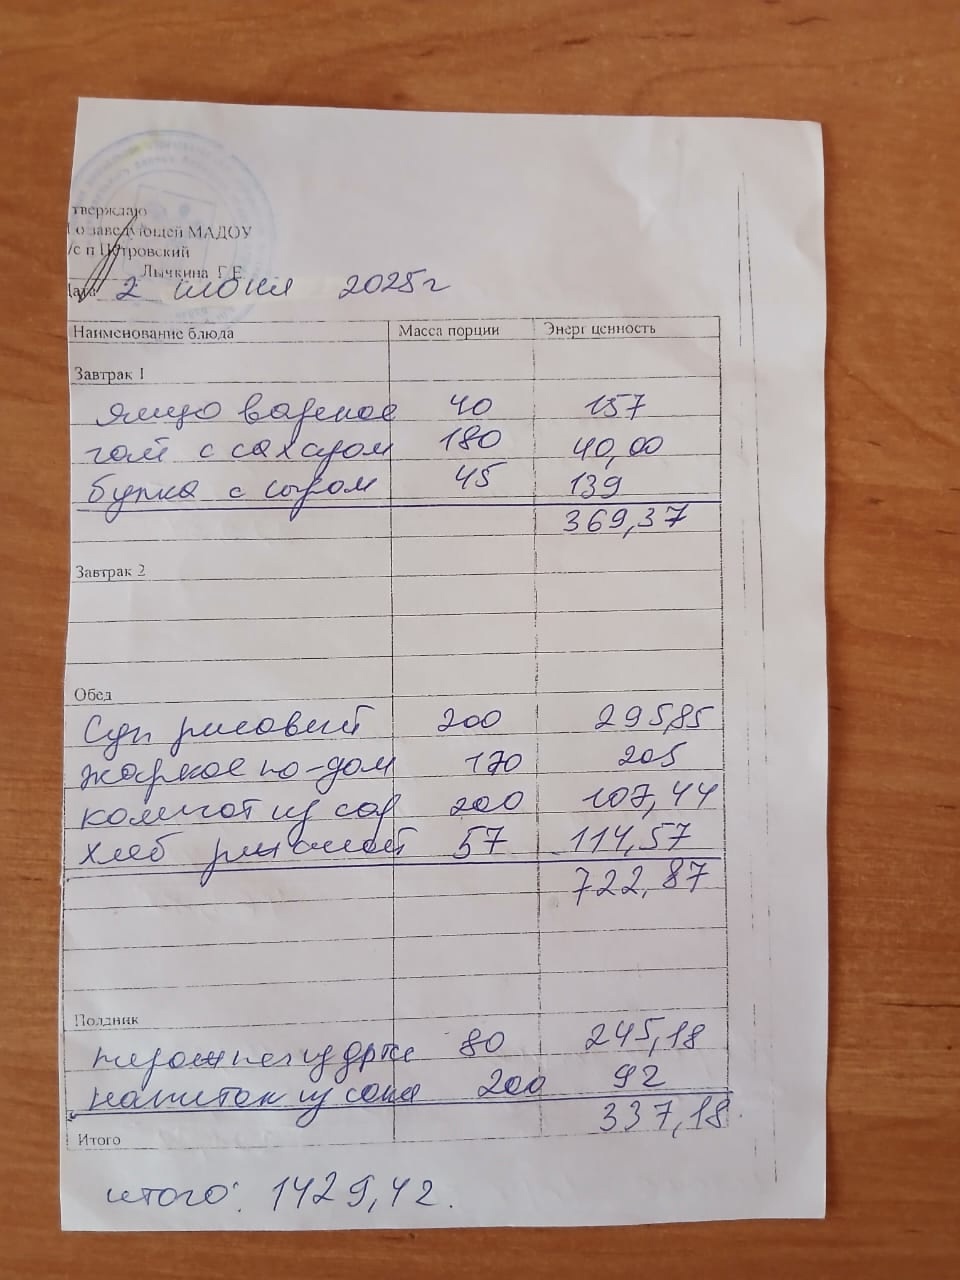 тверждаю
о заведующей МАДОУ
/с п Петровский
Лычкина Г.Е.
Дата 2 июня 2025г
Наименование блюда Масса порции Энерг ценность
Завтрак 1
яйцо вареное 40 157
чай с сахаром 180 40,00
булка с сыром 45 139
369,37
Завтрак 2
Обед
Суп рисовый 200 295,85
жаркое по-дом 170 205
компот из сох 200 107,44
хлеб ржаной 57 114,57
722,87
Полдник
80 245,18
напиток из сока 200 92
337,18
Итого
итого: 1429,42.